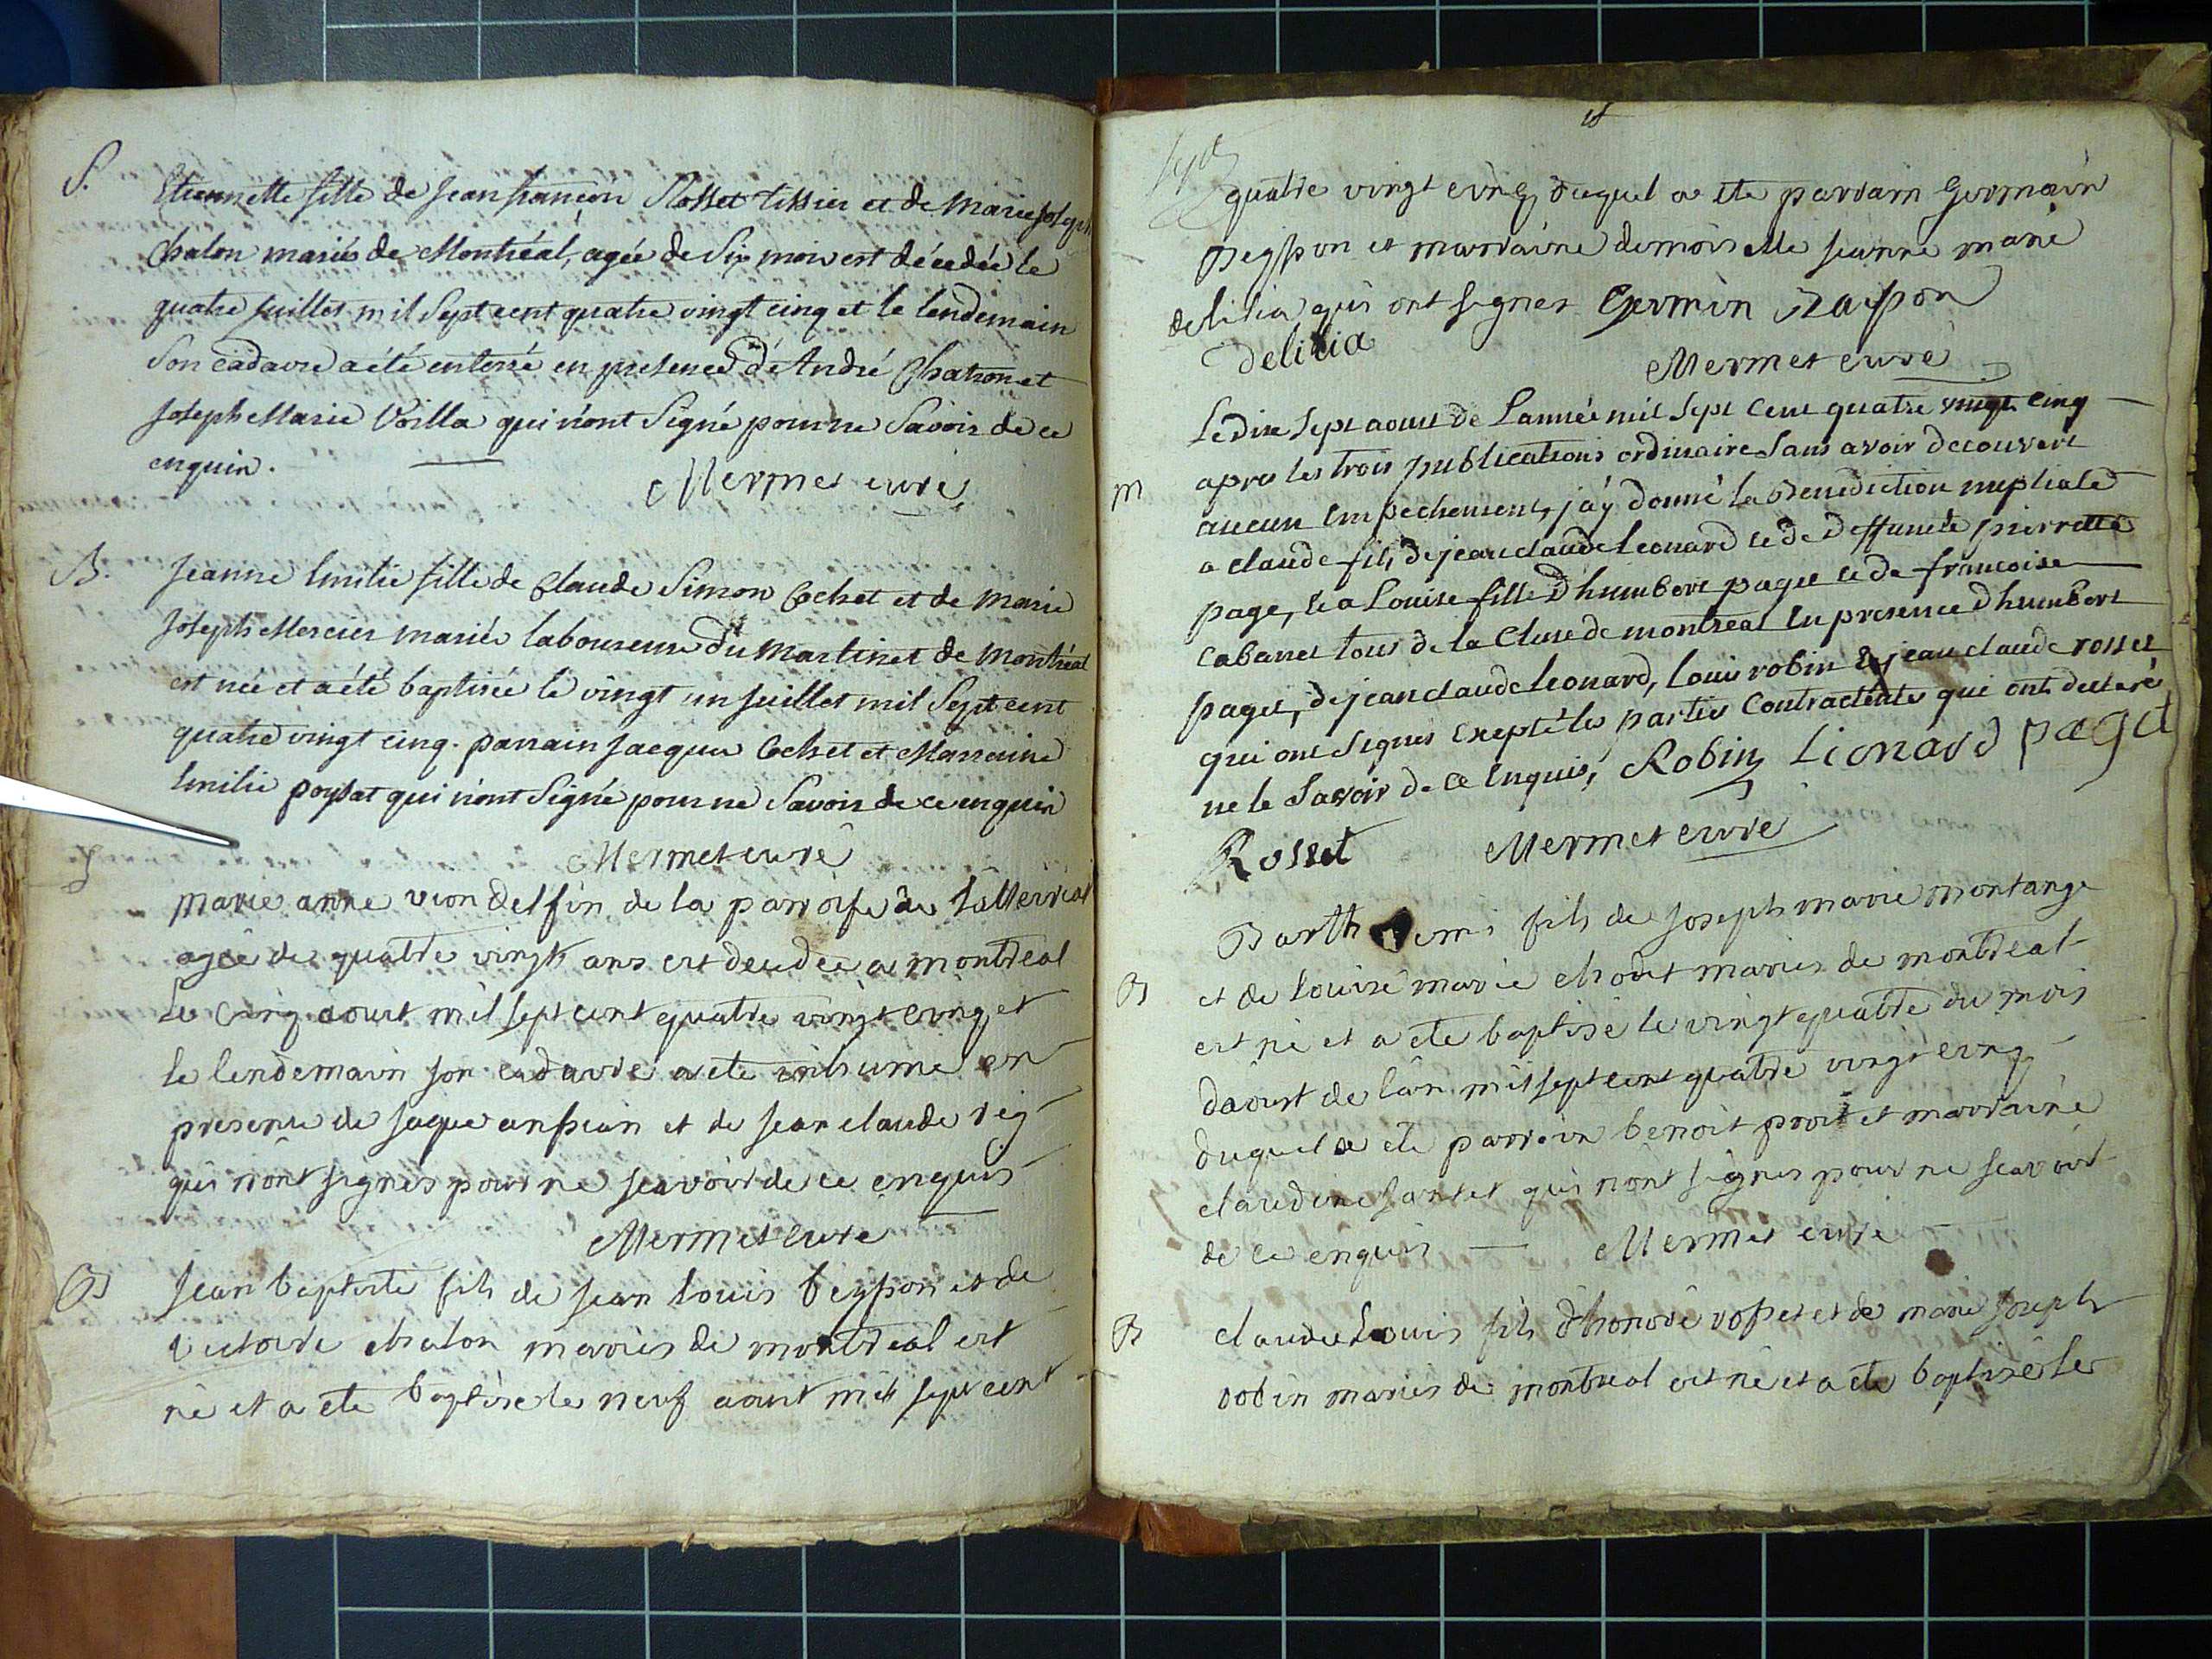 S.
Etiennette fille de jean françois Rosset tissier et de Marie joseph
Chalon mariés de Montréal, agée de Six mois est décedée le
quatre juillet mil Sept cent quatre vingt cinq et le lendemain
Son cadavre a été enterré en presence d'André Chatron et
joseph Marie Voilla qui n'ont Signé pour ne Savoir de ce
enquis.
Mermet curé
B.
jeanne Emilie fille de Claude Simon Cochet et de Marie
joseph Mercier mariés laboureurs du Martinet de Montréal
est née et a été baptisée le vingt un juillet mil Sept cent
quatre vingt cinq. parrain jacques Cochet et Marraine
Emilie poysat qui n'ont Signé pour ne Savoir de ce enquis
Mermet curé
S
marie anne vion delfin de la parroise de
agée de quatre vingts ans est decedee a montreal
le cinq aout mil sept cent quatre vingt cinq et
le lendemain son cadavre a ete inhumé en
presence de jaque anjean et de jean claude rey
qui n'ont signés pour ne scavoir de ce enquis
Mermet curé
B
jean baptiste fils de jean louis beysson et de
victoire chalon mariés de montreal est
né et a ete baptisé le neuf aout mil sept cent
quatre vingt cinq duquel a ete parrain Germain
Beysson et marraine demoiselle jeanne marie
delilia qui ont signer Germin Baison
delilia
Mermet curé
m
Le dix Sept aoust de L'année mil Sept Cent quatre vingt cinq
apres les trois publications ordinaires Sans avoir decouvert
aucun Empechement, j'ay donné la Benediction nuptiale
a claude fils de jean claude Leonard et de deffuncte pierrette
page, et a Louise fille d'humbert paget et de francoise
Cabanet tous de la Cluse de montreal En presence d'humbert
paget, de jean claude Leonard, Louis robin & jean claude rosset
qui ont Signés Excepté les parties Contractentes qui ont declaré
ne le Savoir de ce Enquis, Robin Lionard paget
Rosset Mermet curé
B
Barth emi fils de joseph marie montange
et de louise marie chodet mariés de montreal
est né et a ete baptisé le vingt quatre du mois
d'aoust de l'an mil sept cent quatre vingt cinq
duquel a ete parrein benoit proit et marraine
claudine jantet qui n'ont signés pour ne scavoir
de ce enquis — Mermet curé
B
claude Louis fils d'honoré rosset et de marie joseph
robin mariés de montreal est né et a ete baptisé le